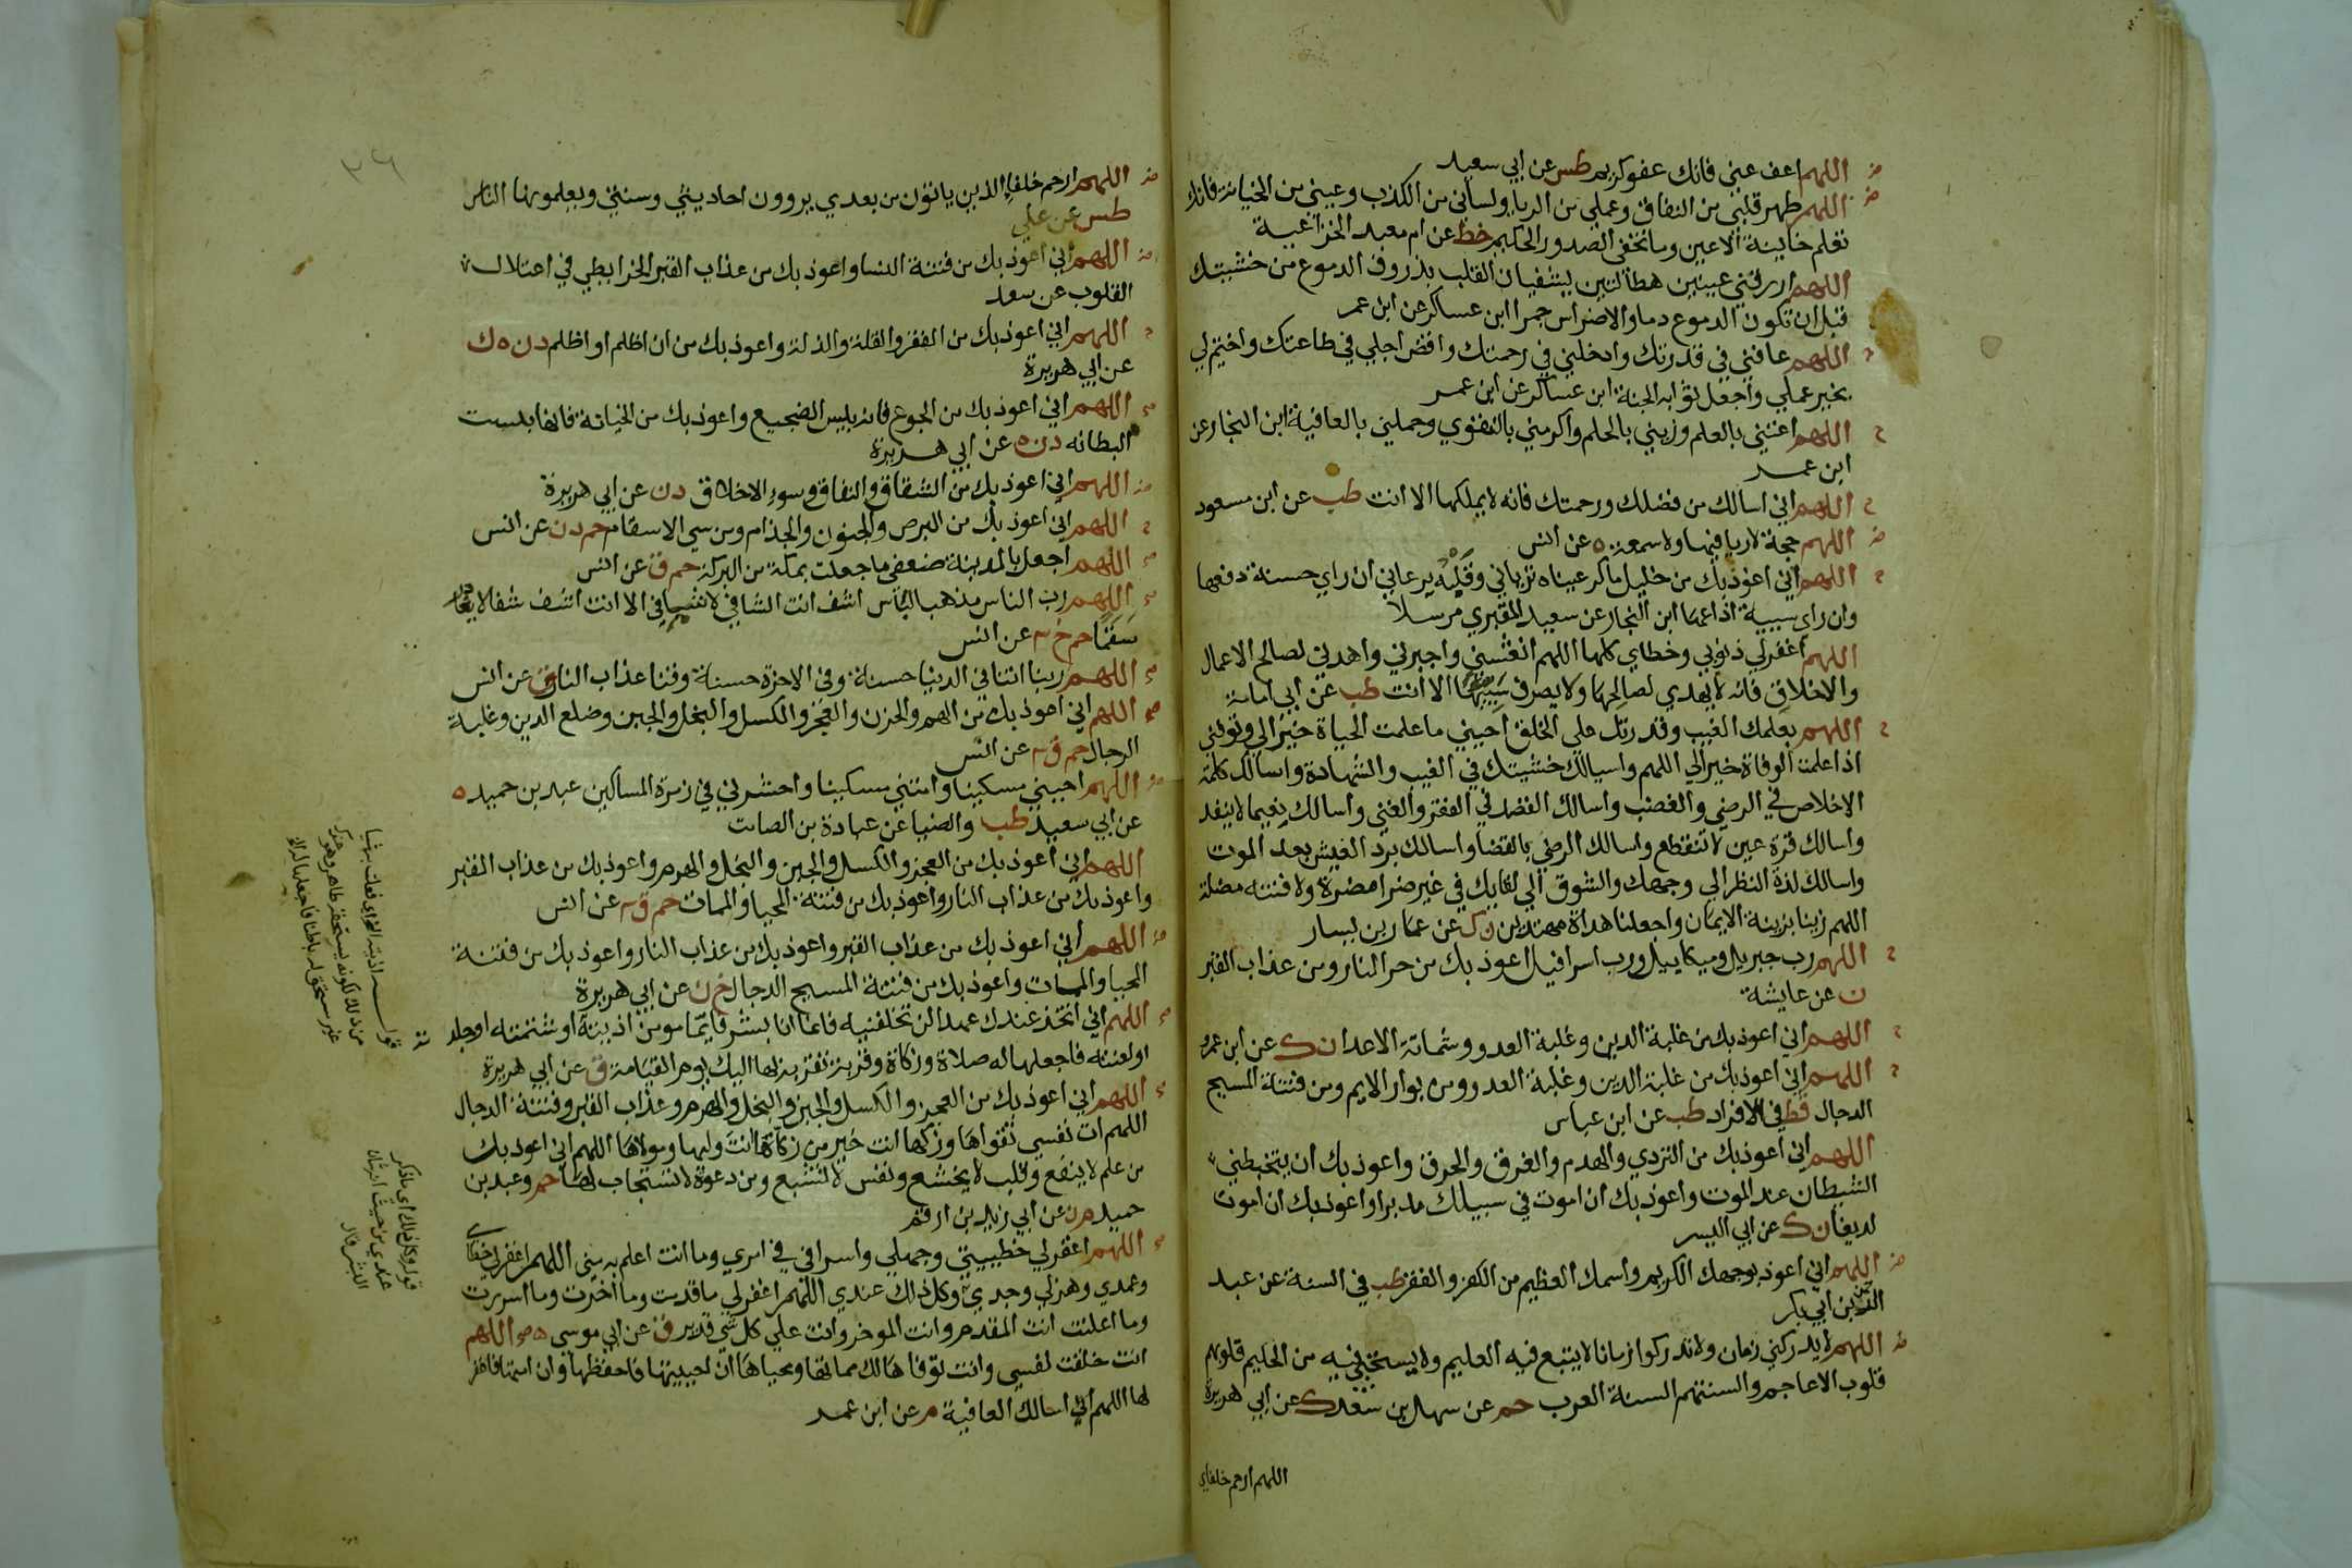 اللهم اعف عني فانك عفو كريم طس عن ابي سعيد
اللهم طهر قلبي من النفاق وعملي من الريا ولساني من الكذب وعيني من الخيانة فانك
تعلم خاينة الاعين وما تخفي الصدور الحكيم خط عن ام معبد الخزاعية
اللهم ارزقني عينين هطالتين يشفيان القلب بذروف الدموع من خشيتك
قبل ان تكون الدموع دما والاضراس جمرا ابن عساكر عن ابن عمر
اللهم عافني في قدرتك وادخلني في رحمتك واقض اجلي في طاعتك واختم لي
بخير عملي واجعل ثوابه الجنة ابن عساكر عن ابن عمر
اللهم اغنني بالعلم وزيني بالحلم واكرمني بالتقوي وجملني بالعافية ابن النجار عن
ابن عمر
اللهم اني اسالك من فضلك ورحمتك فانه لا يملكها الا انت طب عن ابن مسعود
اللهم حجة لا ريا فيها ولا سمعة ه عن انس
اللهم اني اعوذ بك من خليل ماكر عيناه ترياني وقلبه يرعاني ان راي حسنة دفنها
وان راي سيية اذاعها ابن النجار عن سعيد المقبري مرسلا
اللهم اغفر لي ذنوبي وخطاي كلها اللهم انعشني واجبرني واهدني لصالح الاعمال
والاخلاق فانه لا يهدي لصالحها ولا يصرف سييها الا انت طب عن ابي امامة
اللهم بعلمك الغيب وقدرتك علي الخلق احيني ما علمت الحياة خيرا لي وتوفني
اذا علمت الوفاة خيرا لي اللهم واسالك خشيتك في الغيب والشهادة واسالك كلمة
الاخلاص في الرضي والغضب واسالك القصد في الفقر والغني واسالك نعيما لا ينفد
واسالك قرة عين لا تنقطع واسالك الرضي بالقضا واسالك برد العيش بعد الموت
واسالك لذة النظر الي وجهك والشوق الي لقايك في غير ضرا مضرة ولا فتنه مضلة
اللهم زينا بزينة الايمان واجعلنا هداة مهتدين ن ك عن عمار بن يسار
اللهم رب جبريل وميكاييل ورب اسرافيل اعوذ بك من حر النار ومن عذاب القبر
ن عن عايشة
اللهم اني اعوذ بك من غلبة الدين وغلبة العدو وشماتة الاعدا ن ك عن ابن عمرو
اللهم اني اعوذ بك من غلبة الدين وغلبة العدو ومن بوار الايم ومن فتنة المسيح
الدجال قط في الافراد طب عن ابن عباس
اللهم اني اعوذ بك من التردي والهدم والغرق والحرق واعوذ بك ان يتخبطني
الشيطان عند الموت واعوذ بك ان اموت في سبيلك مدبرا واعوذ بك ان اموت
لديغا ن ك عن ابي اليسر
اللهم اني اعوذ بوجهك الكريم واسمك العظيم من الكفر والفقر طب في السنة عن عبد
الرحمن بن ابي بكر
اللهم لا يدركني زمان ولا تدركوا زمانا لا يتبع فيه العليم ولا يستحيي فيه من الحليم قلوبهم
قلوب الاعاجم والسنتهم السنة العرب حم عن سهل بن سعد ك عن ابي هريرة
اللهم ارحم خلفاي
٢٦
اللهم ارحم خلفاي الذين ياتون من بعدي يروون احاديثي وسنتي ويعلمونها الناس
طس عن علي
اللهم اني اعوذ بك من فتنة النسا واعوذ بك من عذاب القبر الخرايطي في اعتلال
القلوب عن سعد
اللهم اني اعوذ بك من الفقر والقلة والذلة واعوذ بك من ان اظلم او اظلم د ن ه ك
عن ابي هريرة
اللهم اني اعوذ بك من الجوع فانه بيس الضجيع واعوذ بك من الخيانة فانها بيست
البطانه د ن ه عن ابي هريرة
اللهم اني اعوذ بك من الشقاق والنفاق وسوء الاخلاق د ن عن ابي هريرة
اللهم اني اعوذ بك من البرص والجنون والجذام ومن سي الاسقام حم د ن عن انس
اللهم اجعل بالمدينة ضعفي ما جعلت بمكة من البركة حم ق عن انس
اللهم رب الناس مذهب الباس اشف انت الشافي لا شافي الا انت اشف شفا لا يغادر
سقما حم خ ٣ عن انس
اللهم ربنا اتنا في الدنيا حسنة وفي الاخرة حسنة وقنا عذاب النار ق عن انس
اللهم اني اعوذ بك من الهم والحزن والعجز والكسل والبخل والجبن وضلع الدين وغلبة
الرجال حم ق ٣ عن انس
اللهم احيني مسكينا وامتني مسكينا واحشرني في زمرة المساكين عبد بن حميد ه
عن ابي سعيد طب والضيا عن عبادة بن الصامت
اللهم اني اعوذ بك من العجز والكسل والجبن والبخل والهرم واعوذ بك من عذاب القبر
واعوذ بك من عذاب النار واعوذ بك من فتنة المحيا والممات حم ق ٣ عن انس
اللهم اني اعوذ بك من عذاب القبر واعوذ بك من عذاب النار واعوذ بك من فتنة
المحيا والممات واعوذ بك من فتنة المسيح الدجال خ ن عن ابي هريرة
اللهم اني اتخذ عندك عهدا لن تخلفنيه فانما انا بشر فايما مومن اذيته او شتمته او جلدته
او لعنته فاجعلها له صلاة وزكاة وقربة تقربه بها اليك يوم القيامة ق عن ابي هريرة
اللهم اني اعوذ بك من العجز والكسل والجبن والبخل والهرم وعذاب القبر وفتنة الدجال
اللهم ات نفسي تقواها وزكها انت خير من زكاها انت وليها ومولاها اللهم اني اعوذ بك
من علم لا ينفع وقلب لا يخشع ونفس لا تشبع ومن دعوة لا تستجاب لها حم وعبد بن
حميد م ن عن ابي زيد بن ارقم
اللهم اغفر لي خطييتي وجهلي واسرافي في امري وما انت اعلم به مني اللهم اغفر لي خطاي
وعمدي وهزلي وجدي وكل ذلك عندي اللهم اغفر لي ما قدمت وما اخرت وما اسررت
وما اعلنت انت المقدم وانت الموخر وانت علي كل شي قدير ق عن ابي موسى اللهم
انت خلقت نفسي وانت توفاها لك مماتها ومحياها ان احييتها فاحفظها وان امتها فاغفر
لها اللهم اني اسالك العافية م عن ابن عمر